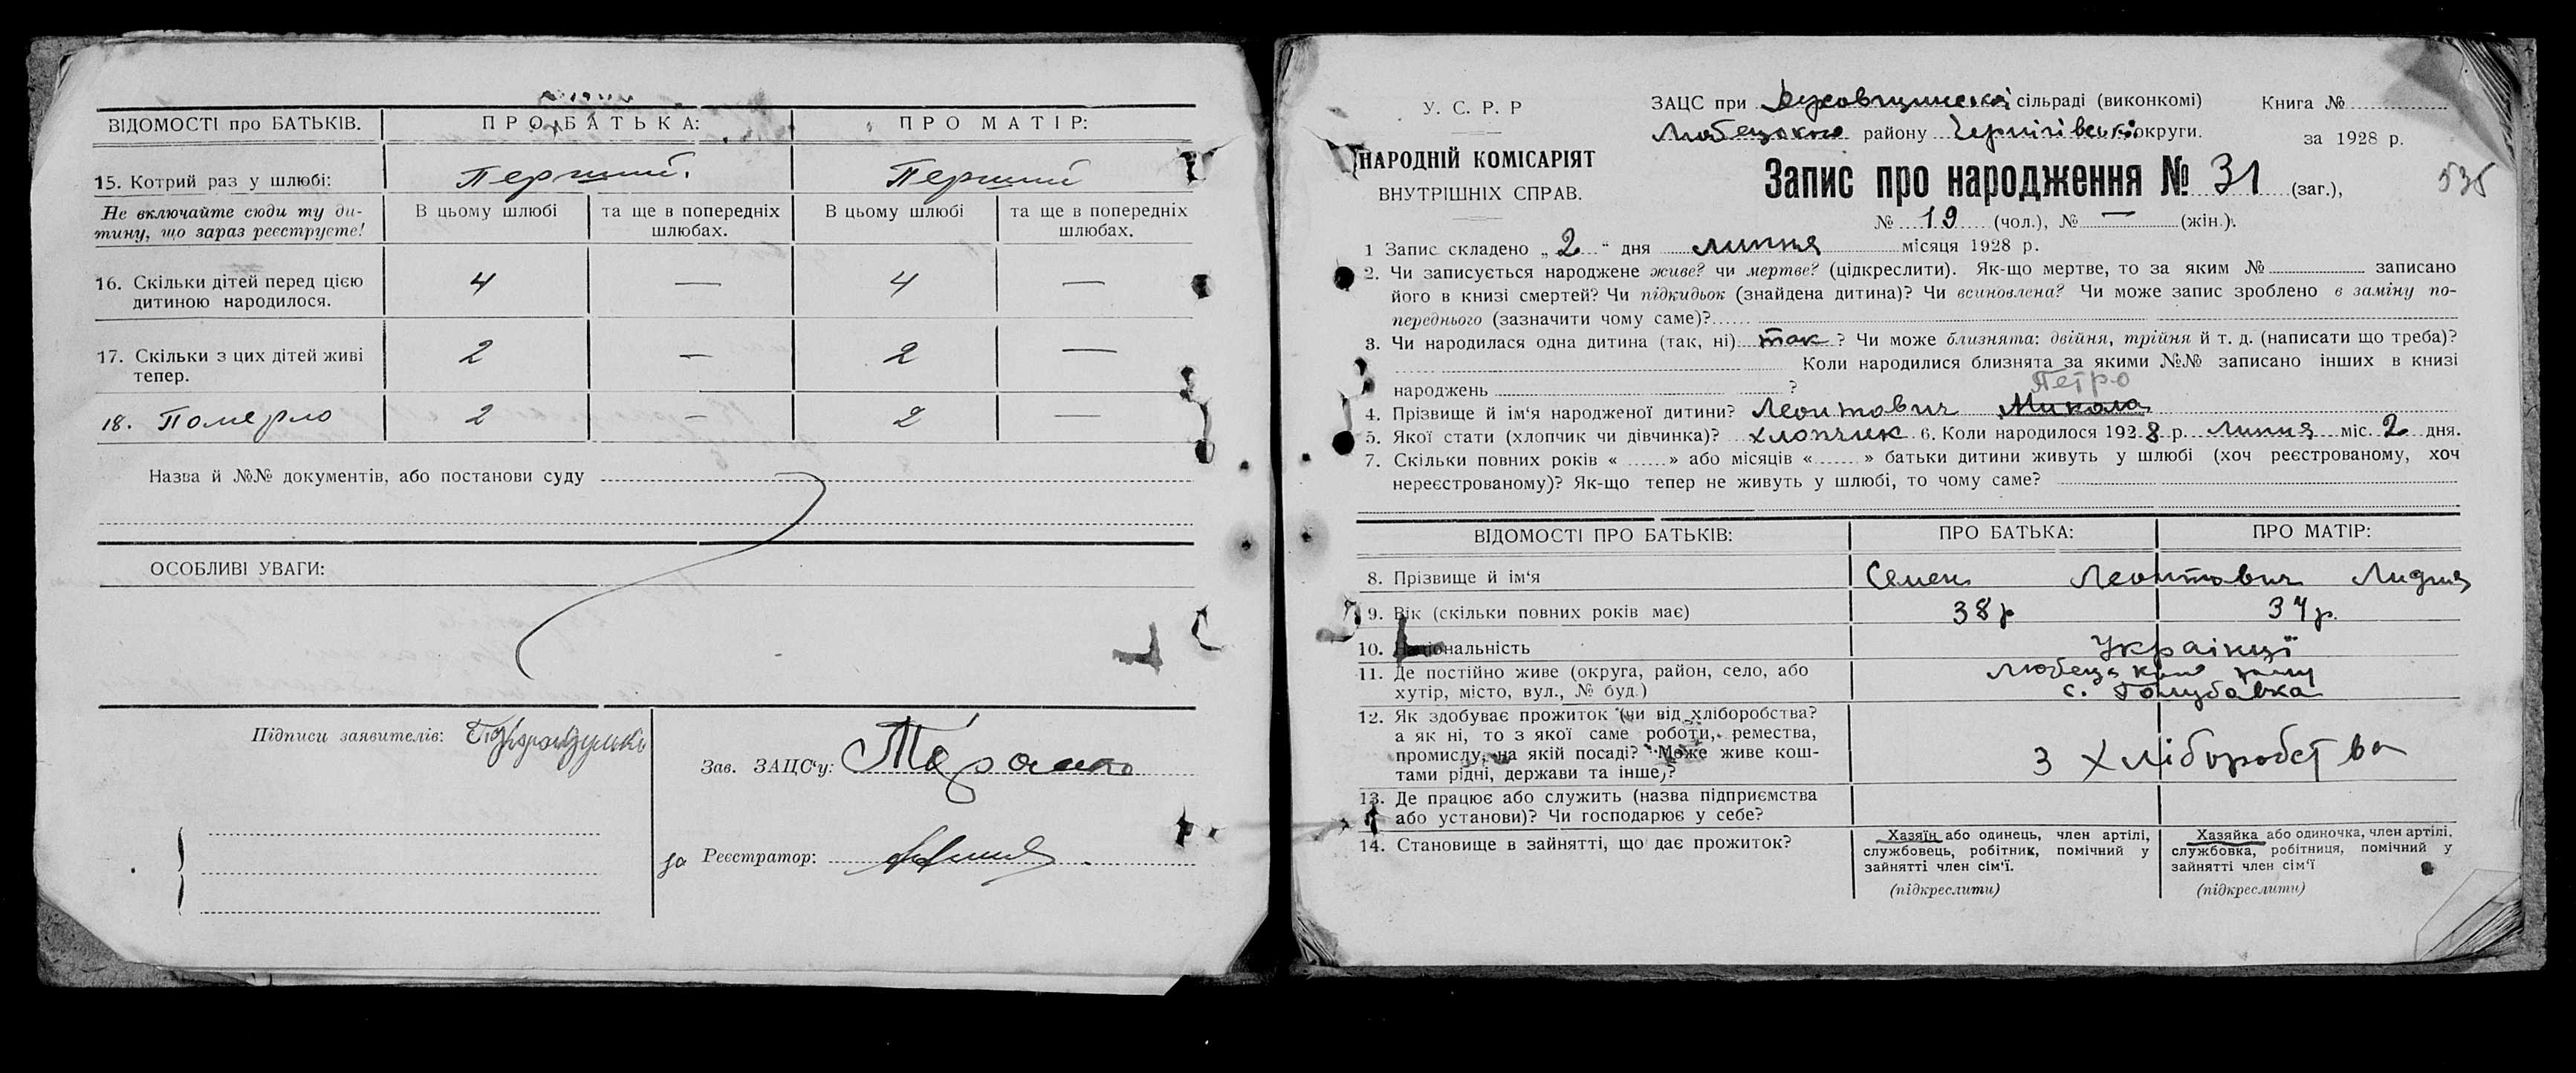 ВІДОМОСТІ про БАТЬКІВ. ПРО БАТЬКА: ПРО МАТІР:
15. Котрий раз у шлюбі: Перший. Перший
Не включайте сюди ту ди-
тину, що зараз реєструєте!
В цьому шлюбі та ще в попередніх шлюбах. В цьому шлюбі та ще в попередніх шлюбах.
16. Скільки дітей перед цією
дитиною народилося. 4 — 4 —
17. Скільки з цих дітей живі
тепер. 2 — 2 —
18. Померло 2 — 2 —
Назва й №№ документів, або постанови суду
ОСОБЛИВІ УВАГИ:
Підписи заявителів:
Зав. ЗАЦС'у:
за Реєстратор:
У. С. Р. Р
НАРОДНІЙ КОМІСАРІЯТ
ВНУТРІШНІХ СПРАВ.
ЗАЦС при сільраді (виконкомі)
Любецького району Чернігівської округи.
Книга №
за 1928 р.
535
Запис про народження № 31 (заг.),
№ 19 (чол.), № — (жін.).
1 Запис складено „ 2 “ дня липня місяця 1928 р.
2. Чи записується народжене живе? чи мертве? (цідкреслити). Як-що мертве, то за яким № записано
його в книзі смертей? Чи підкидьок (знайдена дитина)? Чи всиновлена? Чи може запис зроблено в заміну по-
переднього (зазначити чому саме)?
3. Чи народилася одна дитина (так, ні) так ? Чи може близнята: двійня, трійня й т. д. (написати що треба)?
Коли народилися близнята за якими №№ записано інших в книзі
народжень ?
Петро
4. Прізвище й ім'я народженої дитини? Леонтович Микола
5. Якої стати (хлопчик чи дівчинка)? хлопчик 6. Коли народилося 1928 р. липня міс. 2 дня.
7. Скільки повних років « » або місяців « » батьки дитини живуть у шлюбі (хоч реєстрованому, хоч
нереєстрованому)? Як-що тепер не живуть у шлюбі, то чому саме?
ВІДОМОСТІ ПРО БАТЬКІВ: ПРО БАТЬКА: ПРО МАТІР:
8. Прізвище й ім'я Семен Леонтович Лидия
9. Вік (скільки повних років має) 38 р 34 р.
10. Національність Українці
11. Де постійно живе (округа, район, село, або
хутір, місто, вул., № буд.)
с. Голубовка
12. Як здобуває прожиток (чи від хліборобства?
а як ні, то з якої саме роботи, ремества,
промислу, на якій посаді? Може живе кош-
тами рідні, держави та інше)?
З хліборобства
13. Де працює або служить (назва підприємства
або установи)? Чи господарює у себе?
14. Становище в зайнятті, що дає прожиток?
Хазяїн або одинець, член артілі,
службовець, робітник, помічний у
зайнятті член сім'ї.
(підкреслити)
Хазяйка або одиночка, член артілі,
службовка, робітниця, помічний у
зайнятті член сім'ї
(підкреслити)